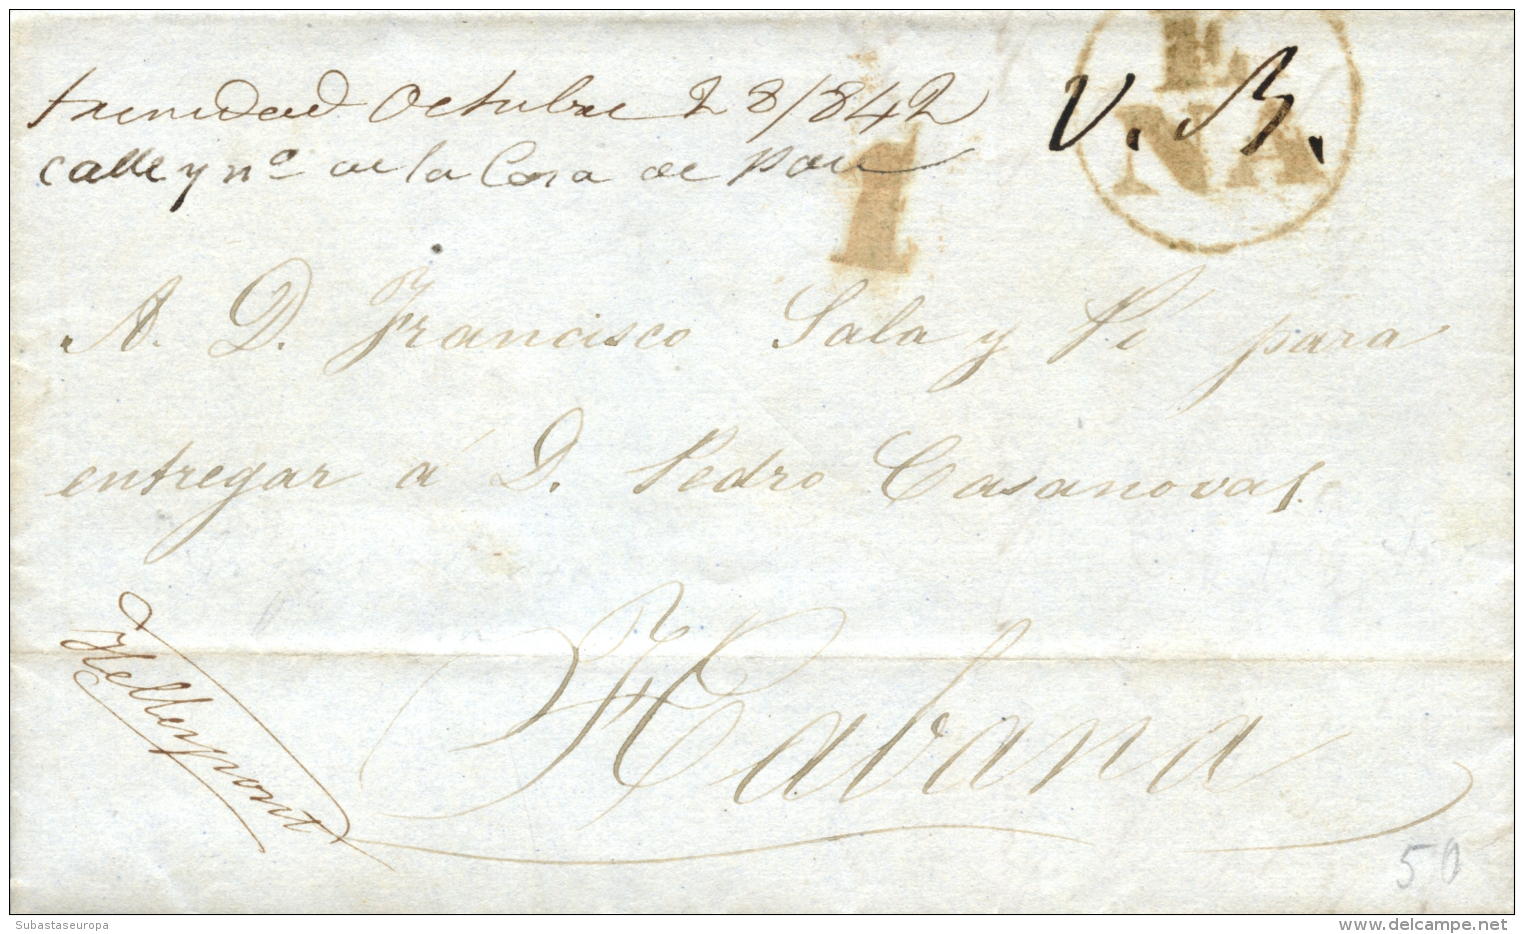 E.
NA
V. B.
trinidad Octubre 28/842
calle y nº de la Casa de
1
A. D. Francisco Sala y Pi para
entregar á D. Pedro Casanovas
Habana
50
Subastaseuropa
www.delcampe.net